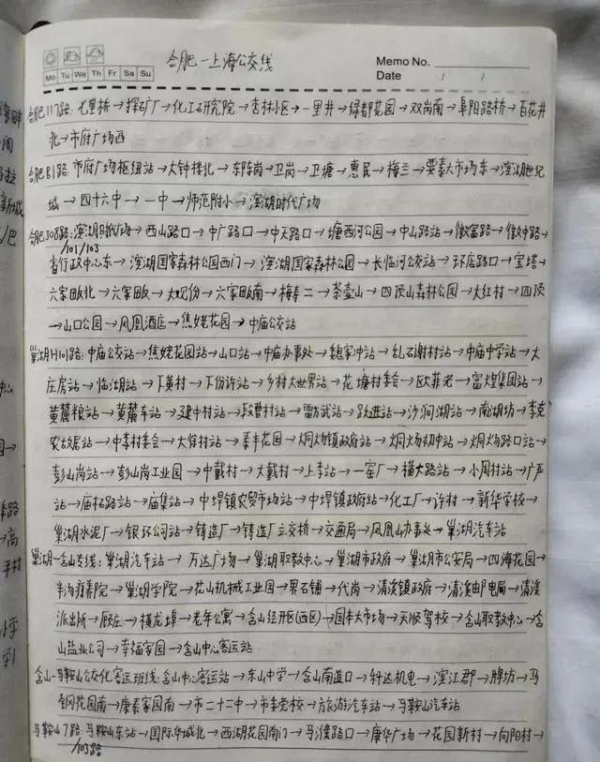 合肥—上海公交线
Memo No.
Mo Tu We Th Fr Sa Su
Date / /
合肥117路: 七里桥→探矿厂→化工研究院→杏林小区→一里井→绿都花园→双岗南→阜阳路桥→百花井
北→市府广场西
合肥81路 市府广场枢纽站→大钟楼北→东陈岗→卫岗→卫塘→惠民→梅兰→要素大市场东→滨湖世纪
城→四十六中→一中→师范附小→滨湖时代广场
合肥308路: 滨湖时代广场→西山路口→中广路口→中天路口→塘西河公园→中山路站→徽富路→徽州路→
/101/103
省行政中心东→滨湖国家森林公园西门→滨湖国家森林公园→长临河公交站→环店路口→宝塔→
六家畈北→六家畈→大现份→六家畈南→梅寿二→茶壶山→四顶山森林公园→大红村→四顶
→山口公园→凤凰酒店→焦姥花园→中庙公交站
巢湖H101路: 中庙公交站→焦姥花园站→山口站→中庙办事处→魏家冲站→乱石谢村站→中庙中学站→大
庄房站→临湖站→下黄村→下份许站→乡村大世界站→花塘村委会→欧菲光→富煌集团站→
黄麓粮站→黄麓车站→建中村站→跃进站→沙涧湖站→南湖坊→李克
农故居站→中李村委会→大俞村站→泰丰花园→烔炀镇政府站→烔炀初中站→烔炀路口站→
彭山岗站→彭山岗工业园→中戴村→大戴村→上李站→一窑厂→横大路站→小周村站→广严
站→庙柘路站→庙集站→中垾镇农贸市场站→中垾镇政府站→化工厂→许村→新华学校→
巢湖水泥厂→银环公司站→铸造厂→铸造厂立交桥→交通局→凤凰山办事处→巢湖汽车站
巢湖-含山专线: 巢湖汽车站→万达广场→巢湖职教中心→巢湖市政府→巢湖市公安局→四海花园→
半汤疗养院→巢湖学院→花山机械工业园→界石铺→代岗→清溪镇政府→清溪邮电局→清溪
派出所→顾庄→横龙埠→老年公寓→含山经开区(西区)→园丰大市场→天顺驾校→含山职教中心→含
山盐业公司→幸福家园→含山中心客运站
含山-马鞍山公交化客运班线: 含山中心客运站→东山中学→含山南道口→轩达机电→滨江郡→牌坊→马
钢花园南→康泰家园南→市二十二中→市委党校→旅游汽车站→马鞍山汽车站
马鞍山7路: 马鞍山东站→国际华城北→西湖花园南门→马濮路口→康华广场→花园新村→向阳村→
/103路